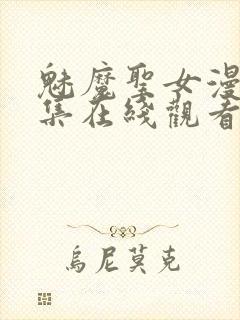 魅魔聖女漫
集在綫觀看
烏尼莫克